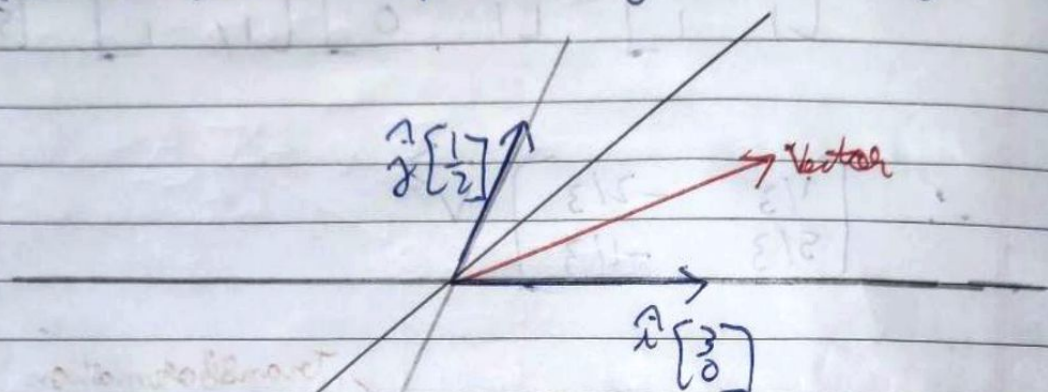 ĵ [1 2]
Vector
î [3 0]